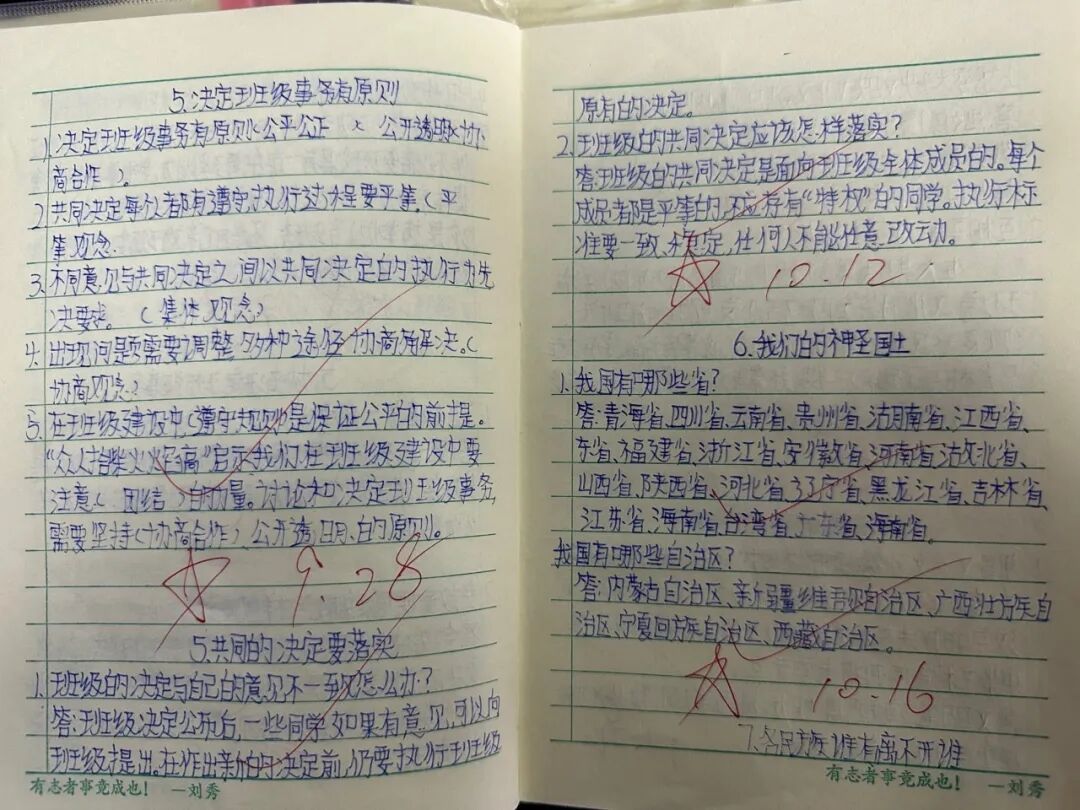 5.决定班级事务有原则
1.决定班级事务有原则(公平公正 )( 公开透明)(协
商合作 )。
2.共同决定每个人都有遵守,执行过程要平等。( 平
等观念
3.不同意见与共同决定之间以共同决定的执行为先
决要求。( 集体观念)
4.出现问题需要调整,多种途径协商解决。(
协商观念)
5.在班级建设中(遵守规则)是保证公平的前提。
“众人拾柴火焰高”启示我们在班级建设中要
注意( 团结 )的力量。讨论和决定班级事务,
需要坚持(协商合作)、公开透明、的原则。
9.28
5.共同的决定要落实
1.班级的决定与自己的意见不一致怎么办?
答:班级决定公布后,一些同学如果有意见,可以向
班级提出。在作出新的决定前,仍要执行班级
有志者事竟成也! —刘秀
原有的决定。
2.班级的共同决定应该怎样落实?
答:班级的共同决定是面向班级全体成员的。每个
成员都是平等的,不应存有“特权”的同学。执行标
准要一致、稳定,任何人不能任意改动。
10.12
6.我们的神圣国土
1.我国有哪些省?
答:青海省、四川省、云南省、贵州省、湖南省、江西省、
东省、福建省、浙江省、安徽省、河南省、湖北省、
山西省、陕西省、河北省、辽宁省、黑龙江省、吉林省、
江苏省、海南省、台湾省、广东省、海南省。
我国有哪些自治区?
答:内蒙古自治区、新疆维吾尔自治区、广西壮方族自
治区、宁夏回方族自治区、西藏自治区。
10.16
7.各民族谁有离不开谁
有志者事竟成也! —刘秀